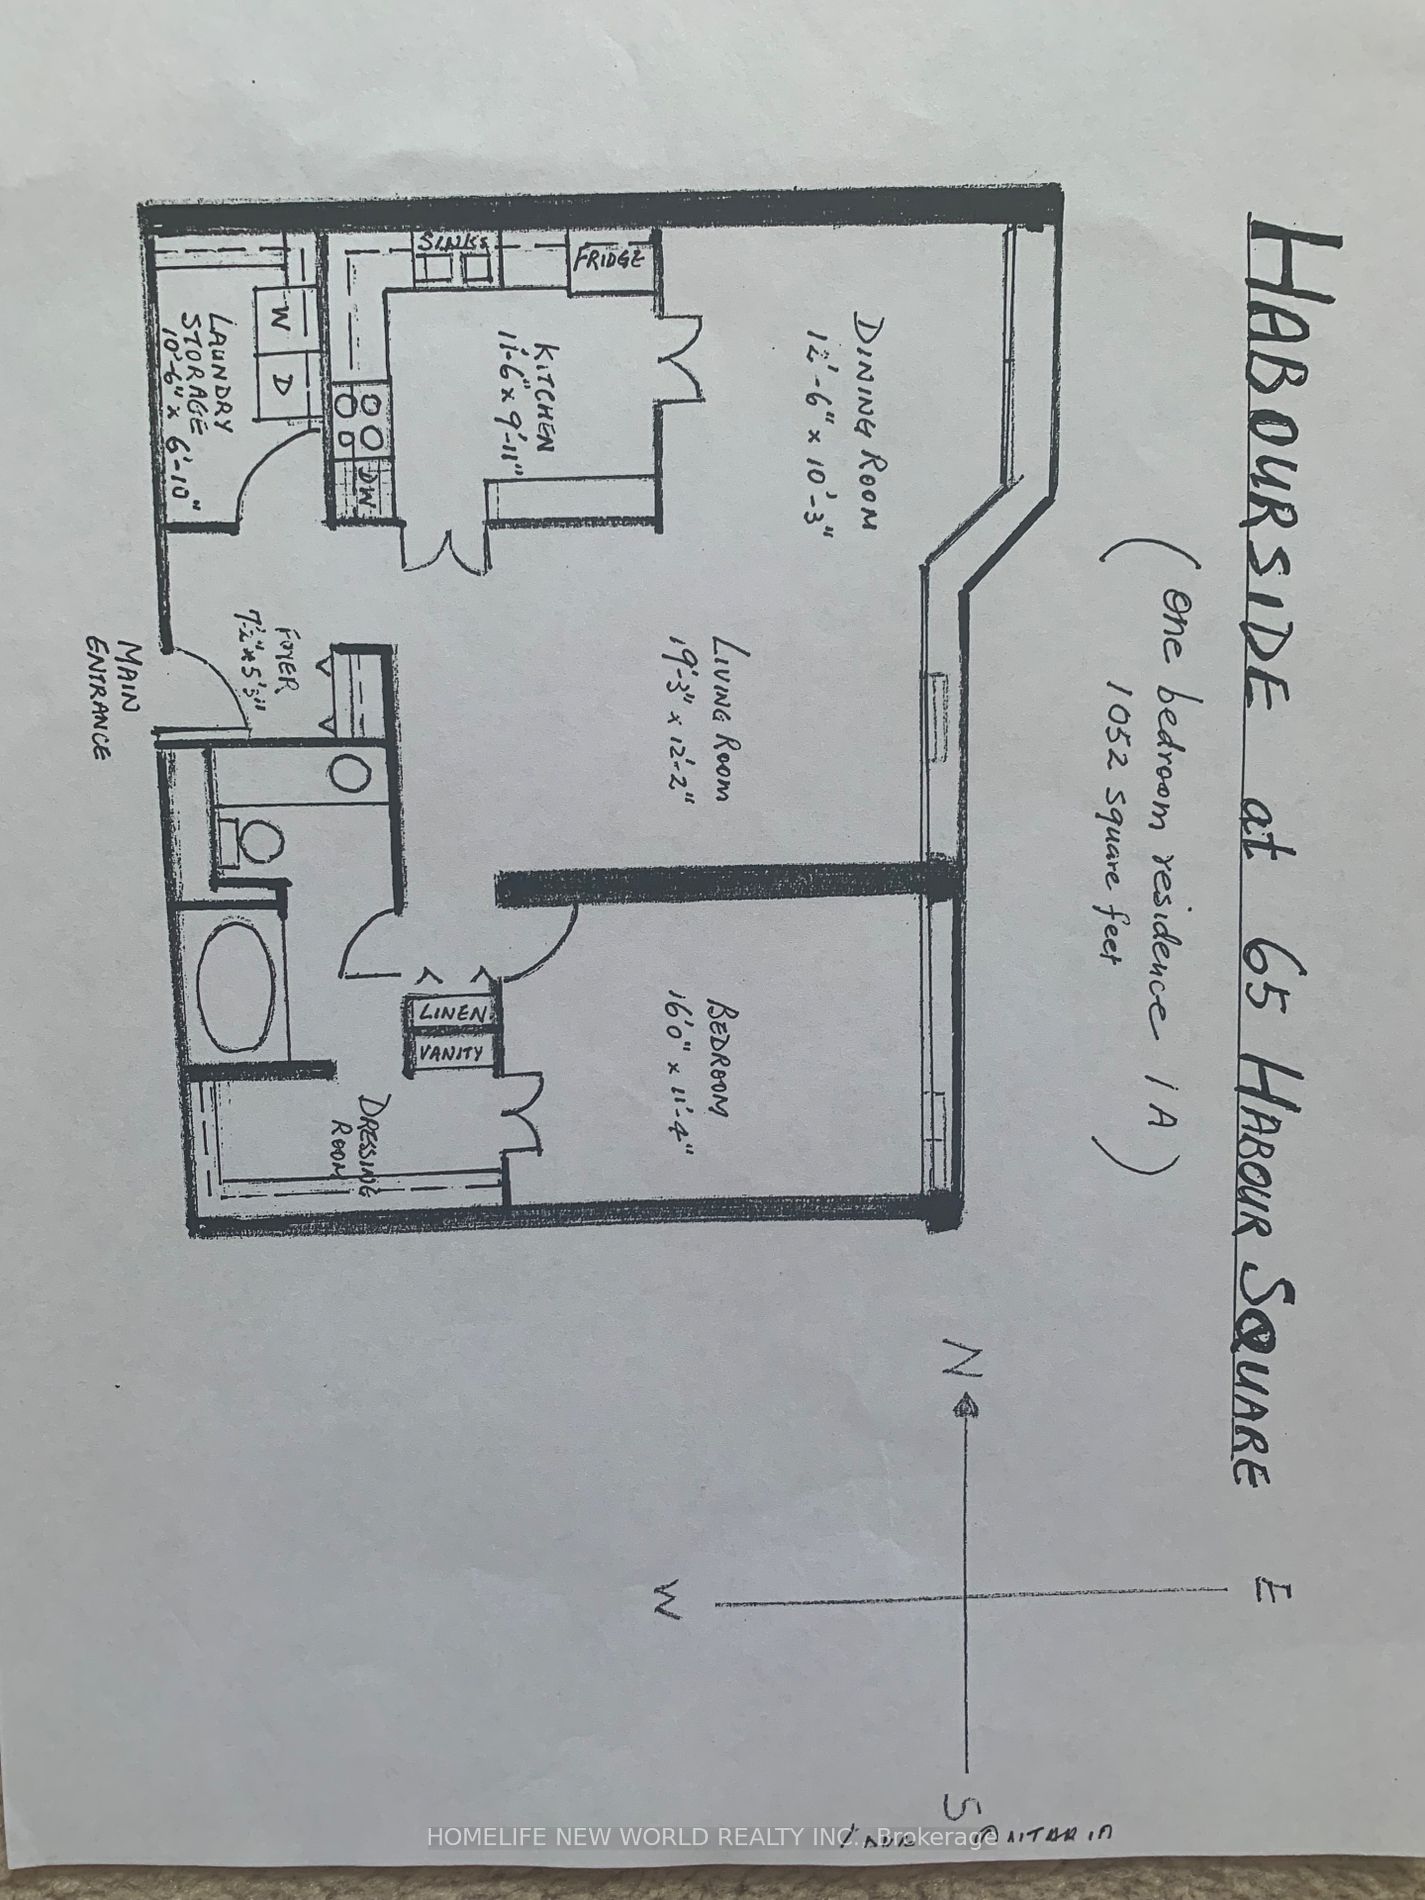 HABOURSIDE at 65 HABOUR SQUARE
(One bedroom residence 1A)
1052 square feet
DINING ROOM
12'-6" x 10'-3"
LIVING ROOM
19'-3" x 12'-2"
BEDROOM
16'0" x 11'-4"
FRIDGE
SINKS
KITCHEN
11'-6" x 9'-11"
DW
W
D
LAUNDRY
STORAGE
10'-6" x 6'-10"
FOYER
MAIN
ENTRANCE
LINEN
VANITY
DRESSING
ROOM
N
E
W
S
HOMELIFE NEW WORLD REALTY INC., Brokerage